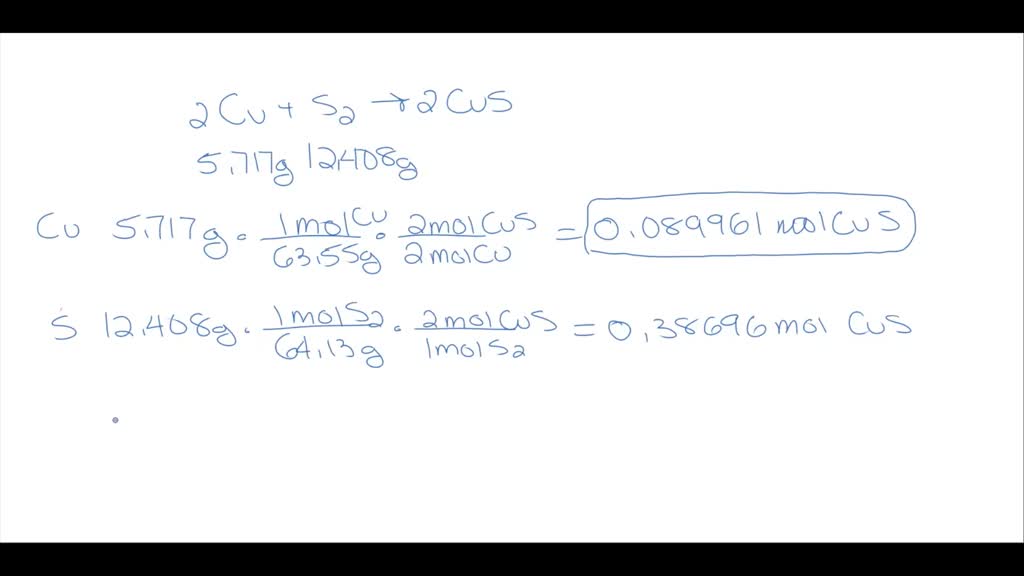 2Cu + S₂ → 2CuS
5.717g 12.408g
Cu 5.717g · 1molCu/63.55g · 2molCuS/2molCu = 0.089961 mol CuS
S 12.408g · 1molS₂/64.13g · 2molCuS/1molS₂ = 0.38696 mol CuS